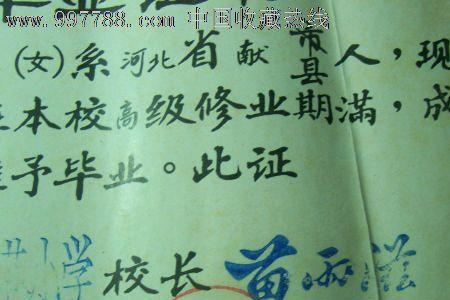 www.997788.com 中国收藏热线
毕业证
(女)系河北省献市县人，现
在本校高级修业期满，成
准予毕业。此证
小学校长苗